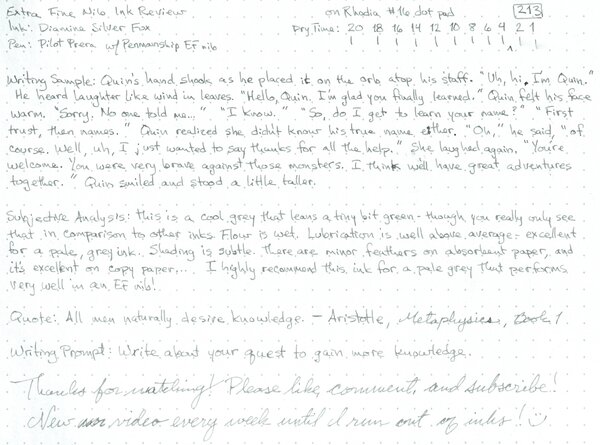 Extra Fine Nib Ink Review on Rhodia #16 dot pad 213
Ink: Diamine Silver Fox Dry Time: 20 18 16 14 12 10 8 6 4 2 1
Pen: Pilot Prera w/ Penmanship EF nib
Writing Sample: Quin's hand shook as he placed it on the orb atop his staff. "Uh, hi. I'm Quin."
He heard laughter like wind in leaves. "Hello, Quin. I'm glad you finally learned." Quin felt his face
warm. "Sorry. No one told me..." "I know." "So, do I get to learn your name?" "First
trust, then names." Quin realized she didn't know his true name either. "Oh," he said, "of
course. Well, uh, I just wanted to say thanks for all the help." She laughed again. "You're
welcome. You were very brave against those monsters. I think we'll have great adventures
together." Quin smiled and stood a little taller.
Subjective Analysis: This is a cool grey that leans a tiny bit green - though you really only see
that in comparison to other inks. Flow is wet. Lubrication is well above average - excellent
for a pale, grey ink. Shading is subtle. There are minor feathers on absorbent paper, and
it's excellent on copy paper... I highly recommend this ink for a pale grey that performs
very well in an EF nib!
Quote: All men naturally desire knowledge. - Aristotle, Metaphysics, Book 1
Writing Prompt: Write about your quest to gain more knowledge.
Thanks for watching! Please like, comment, and subscribe!
New video every week until I run out of inks! :)